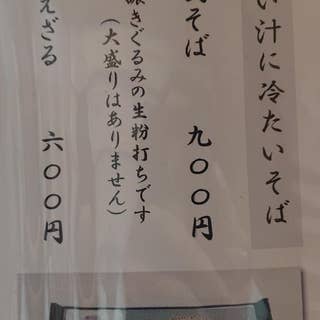 い汁に冷たいそば
そば　九〇〇円
挽きぐるみの生粉打ちです
（大盛りはありません）
えざる　六〇〇円